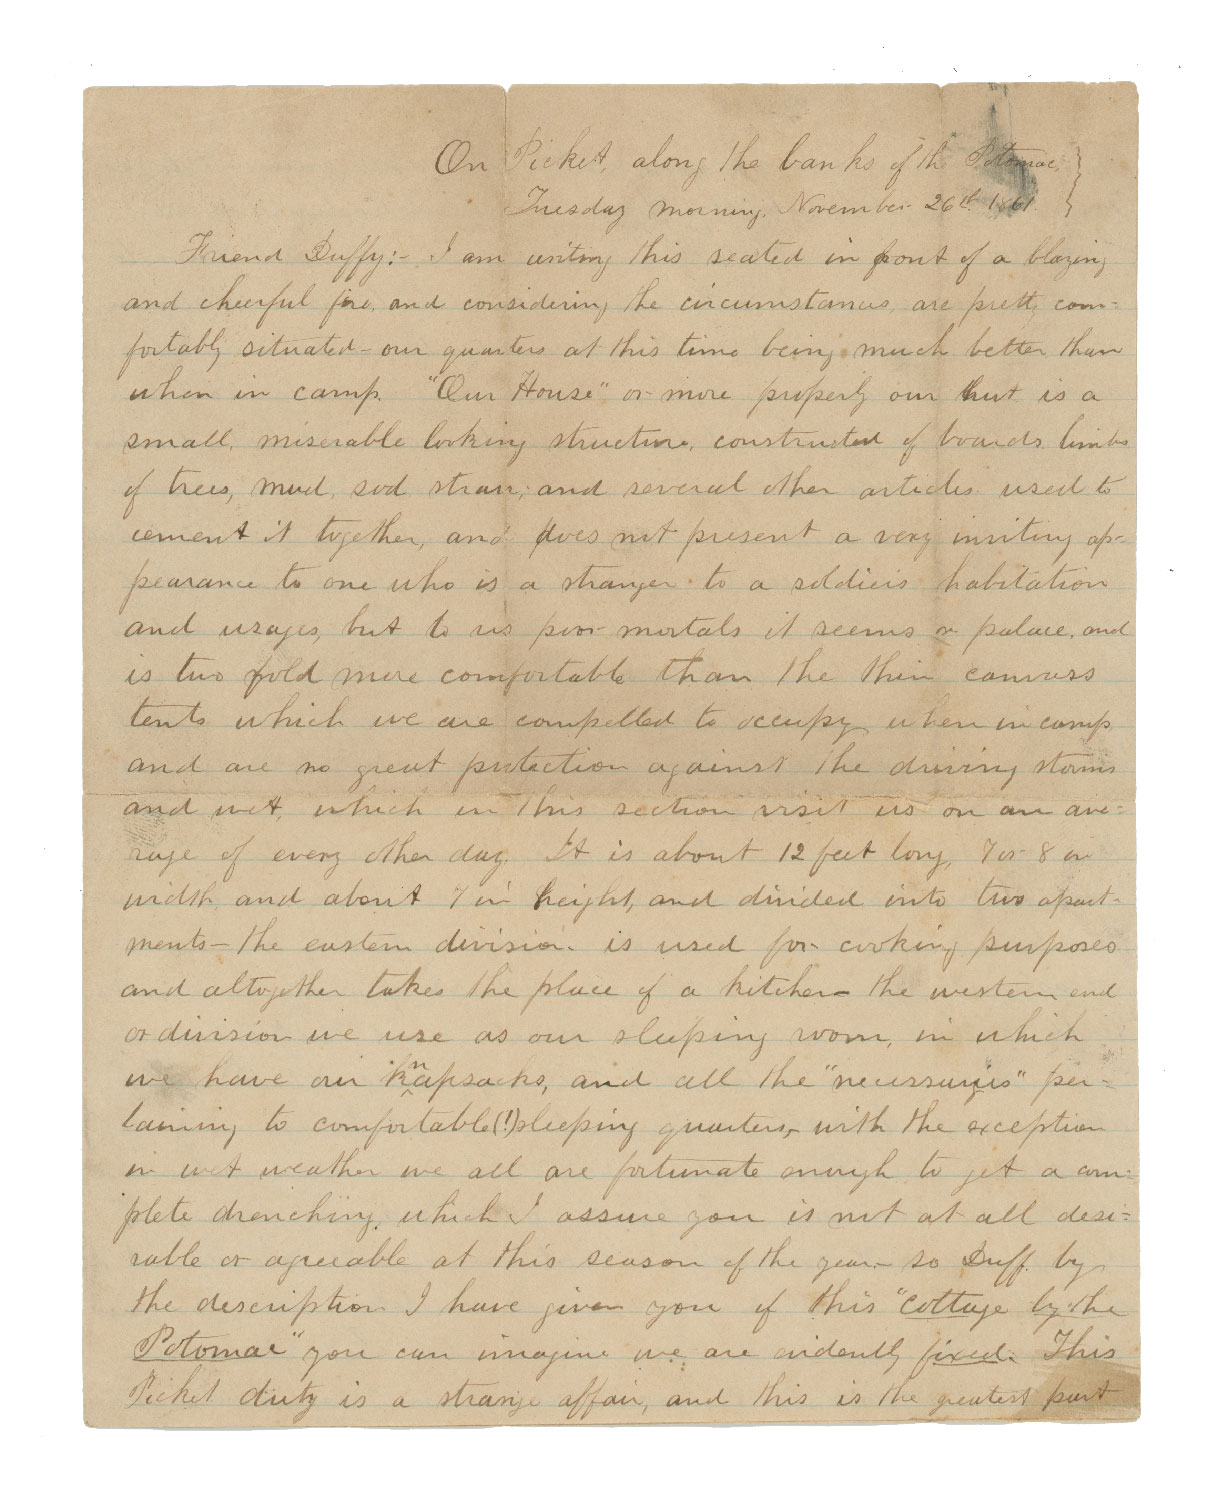 On Picket, along the banks of the Potomac,
Tuesday morning, November 26th 1861
Friend Duffy:- I am writing this seated in front of a blazing
and cheerful fire, and considering the circumstances, are pretty com-
fortably situated - our quarters at this time being much better than
when in camp. "Our House" or more properly our hut is a
small, miserable looking structure, constructed of boards, limbs
of trees, mud, sod, straw, and several other articles used to
cement it together, and does not present a very inviting ap-
pearance to one who is a stranger to a soldiers habitation
and usages, but to us poor mortals it seems a palace, and
is two fold more comfortable than the thin canvass
tents which we are compelled to occupy when in camp
and are no great protection against the driving storms
and wet, which in this section visit us on an ave-
rage of every other day. It is about 12 feet long, 7 or 8 in
width, and about 7 in height, and divided into two apart-
ments - the eastern division is used for cooking purposes
and altogether takes the place of a kitchen - the western end
or division we use as our sleeping room, in which
we have our knapsacks, and all the "necessaries" per-
taining to comfortable(!) sleeping quarters, with the exception
in wet weather we all are fortunate enough to get a com-
plete drenching, which I assure you is not at all desi-
rable or agreeable at this season of the year - so Duff. by
the description I have given you of this "cottage by the
Potomac" you can imagine we are evidently fixed. This
Picket duty is a strange affair, and this is the greatest part